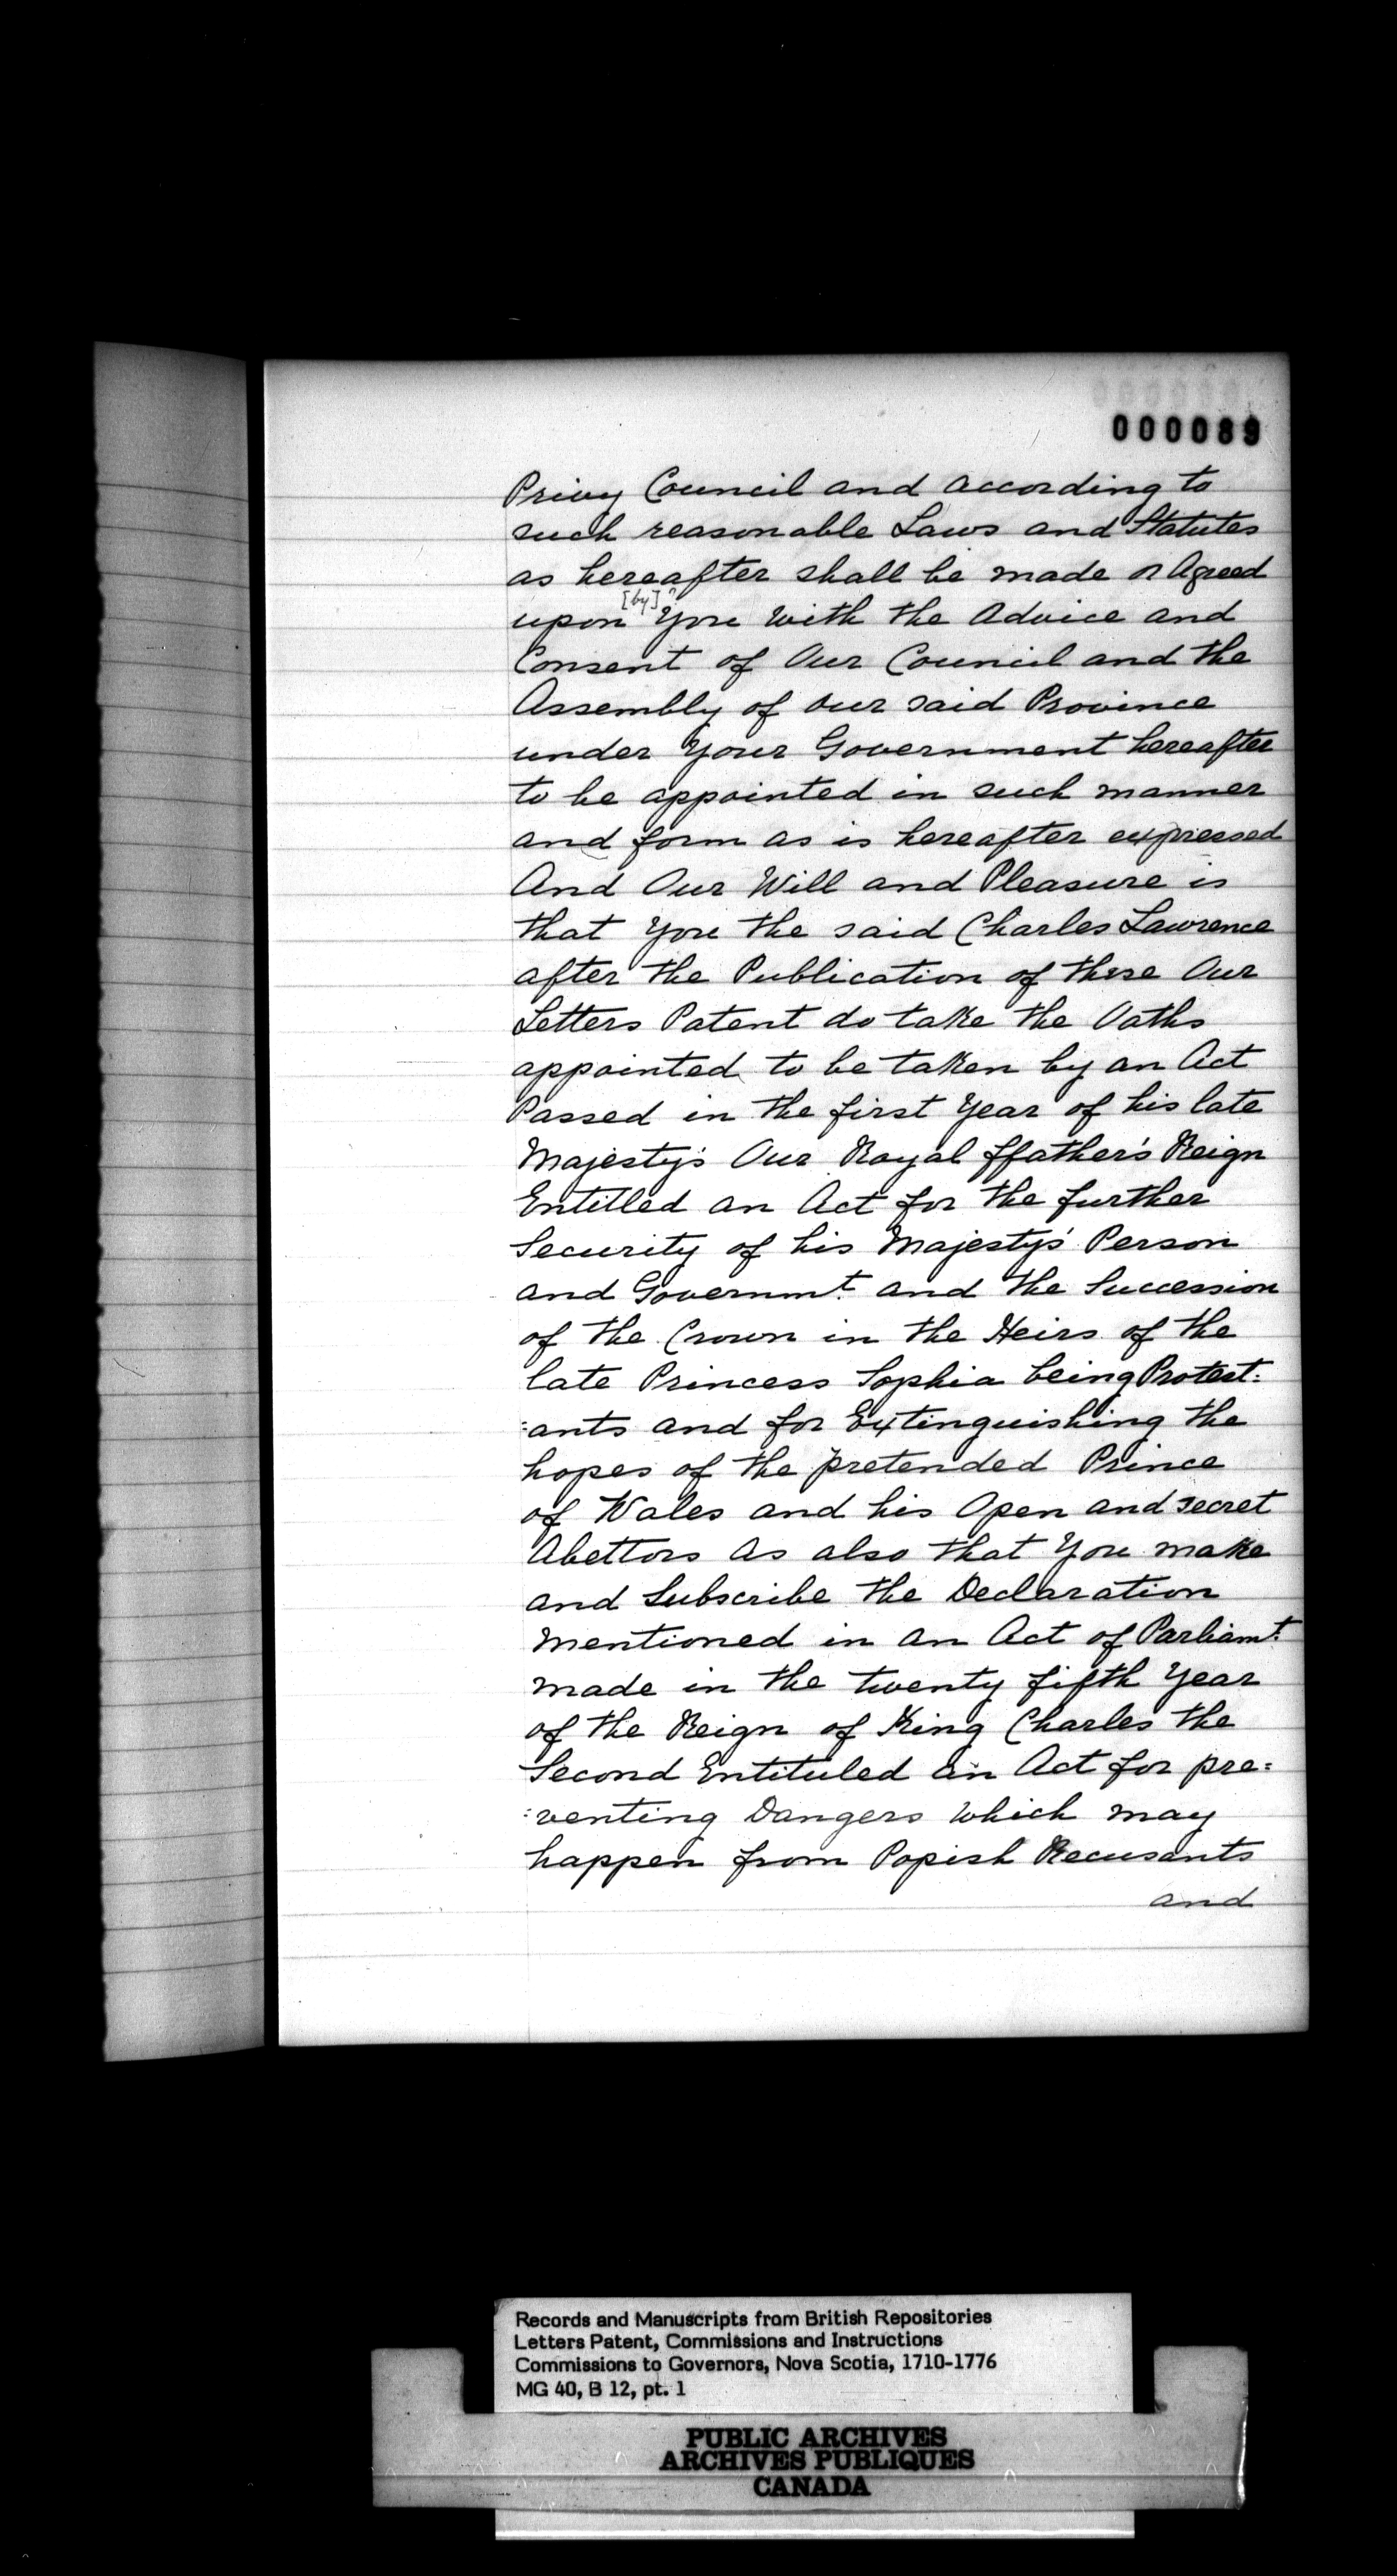 000089
Privy Council and according to
such reasonable Laws and Statutes
as hereafter shall be made or Agreed
upon [by]? You With the Advice and
Consent of Our Council and the
Assembly of our said Province
under Your Government hereafter
to be appointed in such manner
and form as is hereafter expressed
And Our Will and Pleasure is
that You the said Charles Lawrence
after the Publication of these Our
Letters Patent do take the Oaths
appointed to be taken by an Act
Passed in the first Year of his late
Majesty's Our Royal ffather's Reign
Entitled an Act for the further
Security of his Majesty's Person
and Governmt. and the Succession
of the Crown in the Heirs of the
late Princess Sophia being Protest:
:ants and for Extinguishing the
hopes of the pretended Prince
of Wales and his Open and secret
Abettors As also that You make
and Subscribe the Declaration
mentioned in an Act of Parliamt.
made in the twenty fifth Year
of the Reign of King Charles the
Second Entituled an Act for pre:
:venting Dangers Which may
happen from Popish Recusants
and
Records and Manuscripts from British Repositories
Letters Patent, Commissions and Instructions
Commissions to Governors, Nova Scotia, 1710-1776
MG 40, B 12, pt. 1
PUBLIC ARCHIVES
ARCHIVES PUBLIQUES
CANADA